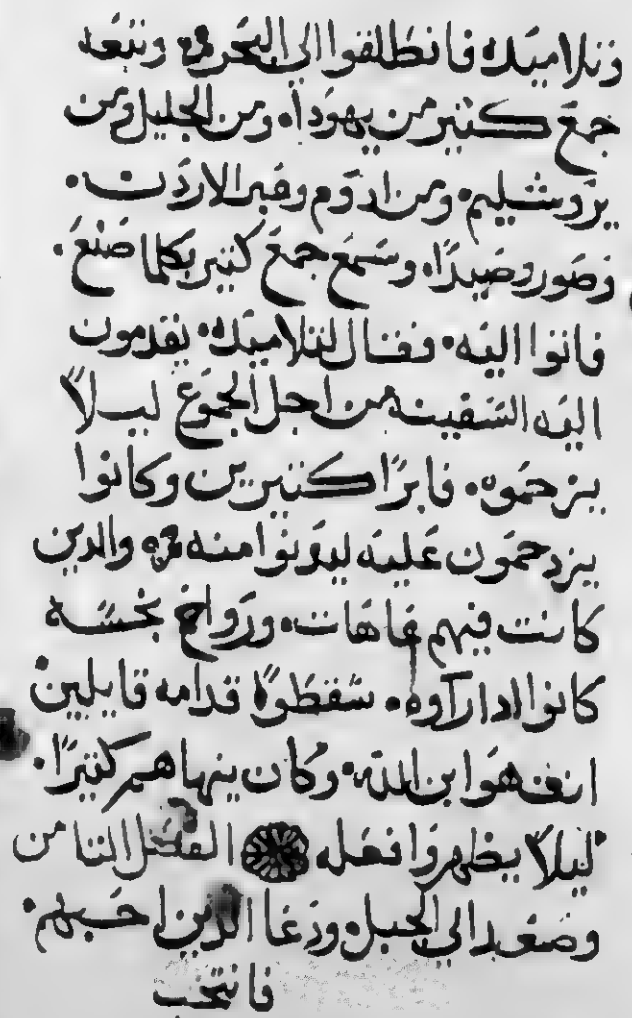 وتلاميده فانطلقوا الي البحر وتبعه
جمع كثير من يهودا، ومن الجليل ومن
يروشليم، ومن ادوم وعبر الاردن.
وصور وصيدا، وسمع جمع كثير بكلما صنع.
فاتوا اليه، فقال لتلاميده، يقدمون
اليه السفينه من اجل الجموع ليلا
يزحموه. فابرا كثيرين وكانوا
يزدحمون عليه ليدنوا منه والدين
كانت فيهم عاهات، ورواح نجسه
كانوا ادا راوه، سقطوا قدامه قايلين
انت هوا بن الله، وكان ينهاهم كثيرا.
ليلا يظهروا فعله الفصل الثامن
وصعد الي الجبل ودعا الدين احبهم،
فانتخب